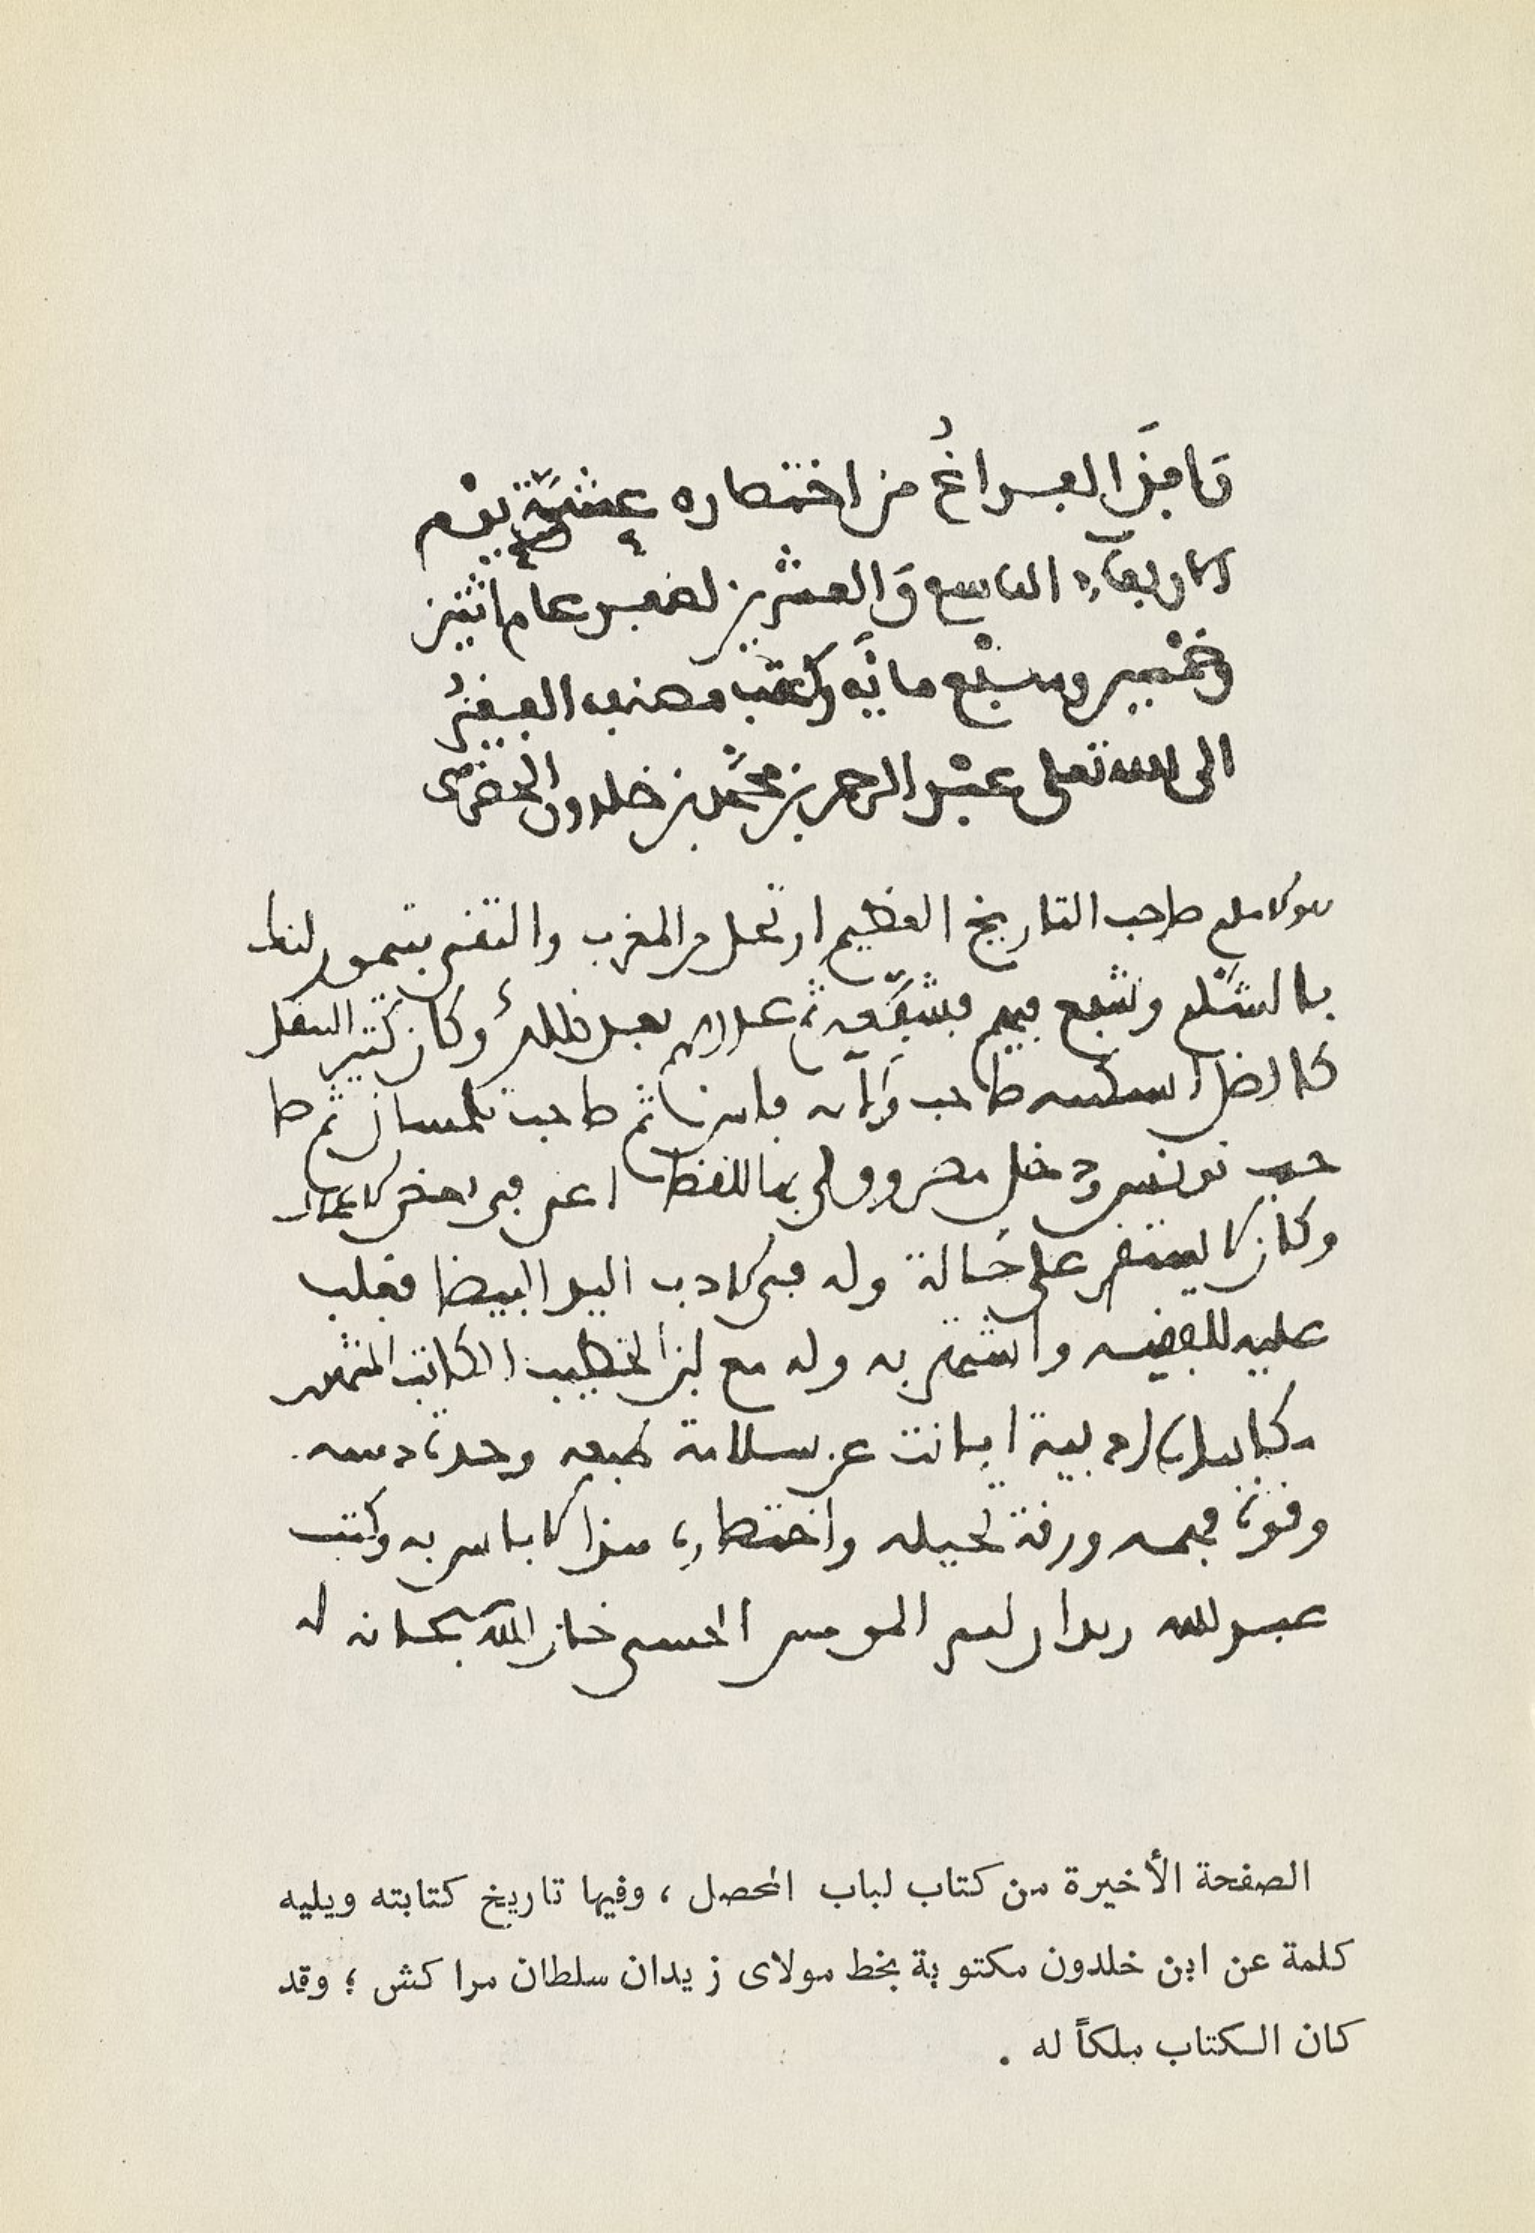 وَافَقَ الفراغُ من اختصاره عشيَّة يوْم
الاربعاء التاسع وَالعشْرين لصفر عام اثنين
وخمْسين وسبْع مائَه وكتب مصنفه الفقيرُ
الى الله تعلى عبْد الرحمن بن محمَّد بن خلدون الحضرمى
صاحب التاريخ العظيم ارتحل من المغرب والتقى بتمورلنك
بالشام وشفع فيهم فشفعه ثم غدرهم بعد ذلك وكان كثير التنقل
صاحب فاس ثم صاحب تلمسان ثم صا
حب تونس ودخل مصر وولى بها القضا اعنى فى بعض الاعمال
وكان لا يستقر على حالة وله فى الادب اليد البيضا فغلب
عليه الفقه واشتهر به وله مع ابن الخطيب الكاتب المشهور
ادبية ابانت عن سلامة طبعه وحدة ذهنه
وقوة فهمه ورقة تخيله واختصاره هذا لا باس به وكتب
عبد الله زيدان امير المومنين الحسنى خار الله سبحانه له
الصفحة الأخيرة من كتاب لباب المحصل ، وفيها تاريخ كتابته ويليه
كلمة عن ابن خلدون مكتوبة بخط مولاى زيدان سلطان مراكش ؛ وقد
كان الكتاب ملكاً له .